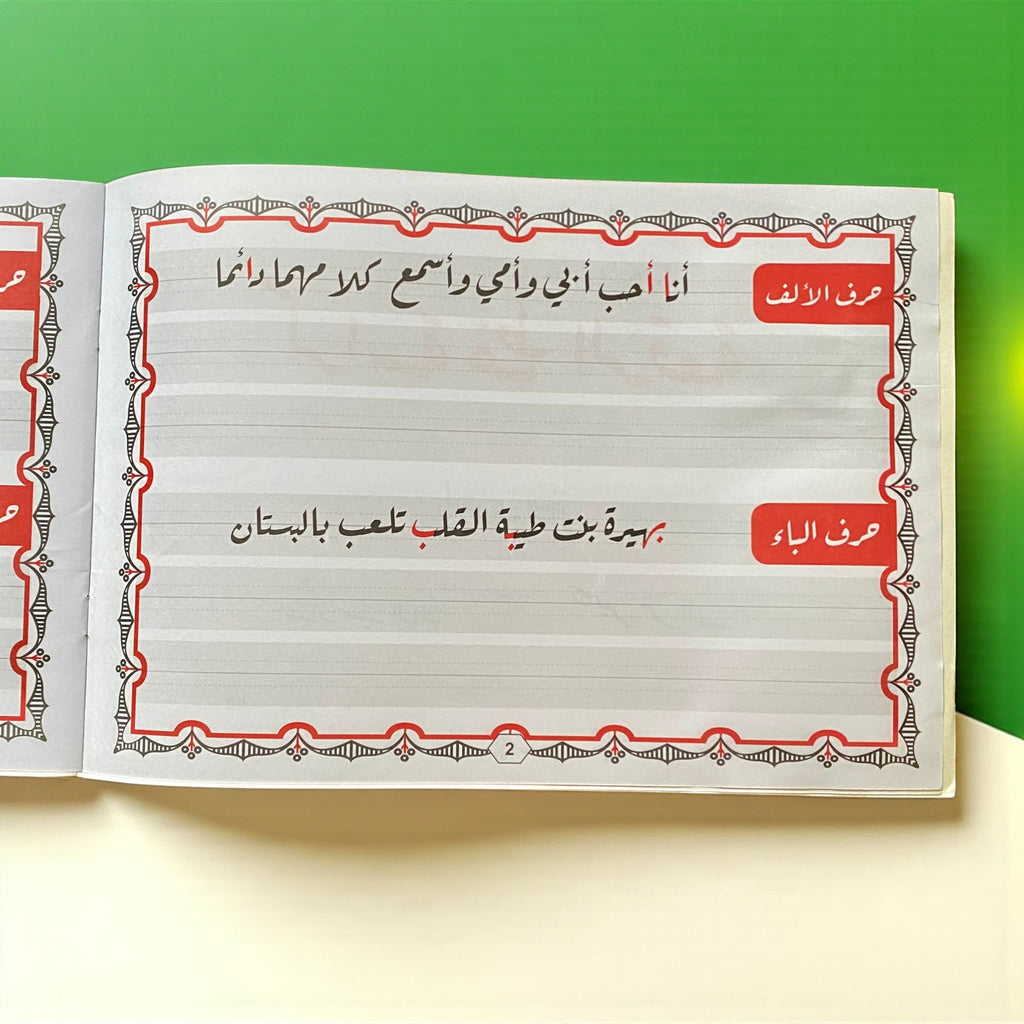 حرف الألف
أنا أحب أبي وأمي وأسمع كلامهما دائما
حرف الباء
بهيرة بنت طيبة القلب تلعب بالبستان
2